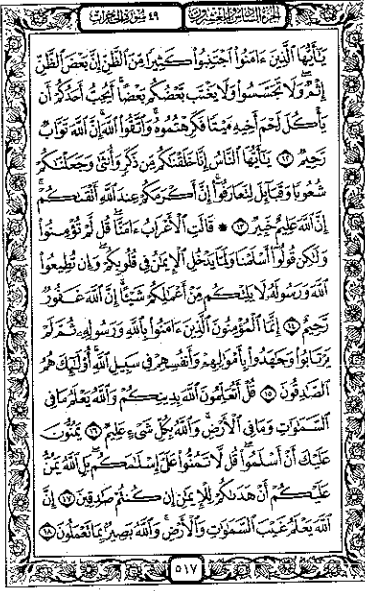 الجزء السادس والعشرون ٤٩ سورة الحجرات
يَٰٓأَيُّهَا ٱلَّذِينَ ءَامَنُوا۟ ٱجْتَنِبُوا۟ كَثِيرًا مِّنَ ٱلظَّنِّ إِنَّ بَعْضَ ٱلظَّنِّ
إِثْمٌ وَلَا تَجَسَّسُوا۟ وَلَا يَغْتَب بَّعْضُكُم بَعْضًا أَيُحِبُّ أَحَدُكُمْ أَن
يَأْكُلَ لَحْمَ أَخِيهِ مَيْتًا فَكَرِهْتُمُوهُ وَٱتَّقُوا۟ ٱللَّهَ إِنَّ ٱللَّهَ تَوَّابٌ
رَّحِيمٌ ١٢ يَٰٓأَيُّهَا ٱلنَّاسُ إِنَّا خَلَقْنَٰكُم مِّن ذَكَرٍ وَأُنثَىٰ وَجَعَلْنَٰكُمْ
شُعُوبًا وَقَبَآئِلَ لِتَعَارَفُوٓا۟ إِنَّ أَكْرَمَكُمْ عِندَ ٱللَّهِ أَتْقَىٰكُمْ
إِنَّ ٱللَّهَ عَلِيمٌ خَبِيرٌ ١٣ ۞ قَالَتِ ٱلْأَعْرَابُ ءَامَنَّا قُل لَّمْ تُؤْمِنُوا۟
وَلَٰكِن قُولُوٓا۟ أَسْلَمْنَا وَلَمَّا يَدْخُلِ ٱلْإِيمَٰنُ فِى قُلُوبِكُمْ وَإِن تُطِيعُوا۟
ٱللَّهَ وَرَسُولَهُۥ لَا يَلِتْكُم مِّنْ أَعْمَٰلِكُمْ شَيْـًٔا إِنَّ ٱللَّهَ غَفُورٌ
رَّحِيمٌ ١٤ إِنَّمَا ٱلْمُؤْمِنُونَ ٱلَّذِينَ ءَامَنُوا۟ بِٱللَّهِ وَرَسُولِهِۦ ثُمَّ لَمْ
يَرْتَابُوا۟ وَجَٰهَدُوا۟ بِأَمْوَٰلِهِمْ وَأَنفُسِهِمْ فِى سَبِيلِ ٱللَّهِ أُو۟لَٰٓئِكَ هُمُ
ٱلصَّٰدِقُونَ ١٥ قُلْ أَتُعَلِّمُونَ ٱللَّهَ بِدِينِكُمْ وَٱللَّهُ يَعْلَمُ مَا فِى
ٱلسَّمَٰوَٰتِ وَمَا فِى ٱلْأَرْضِ وَٱللَّهُ بِكُلِّ شَىْءٍ عَلِيمٌ ١٦ يَمُنُّونَ
عَلَيْكَ أَنْ أَسْلَمُوا۟ قُل لَّا تَمُنُّوا۟ عَلَىَّ إِسْلَٰمَكُم بَلِ ٱللَّهُ يَمُنُّ
عَلَيْكُمْ أَنْ هَدَىٰكُمْ لِلْإِيمَٰنِ إِن كُنتُمْ صَٰدِقِينَ ١٧ إِنَّ
ٱللَّهَ يَعْلَمُ غَيْبَ ٱلسَّمَٰوَٰتِ وَٱلْأَرْضِ وَٱللَّهُ بَصِيرٌۢ بِمَا تَعْمَلُونَ ١٨
٥١٧